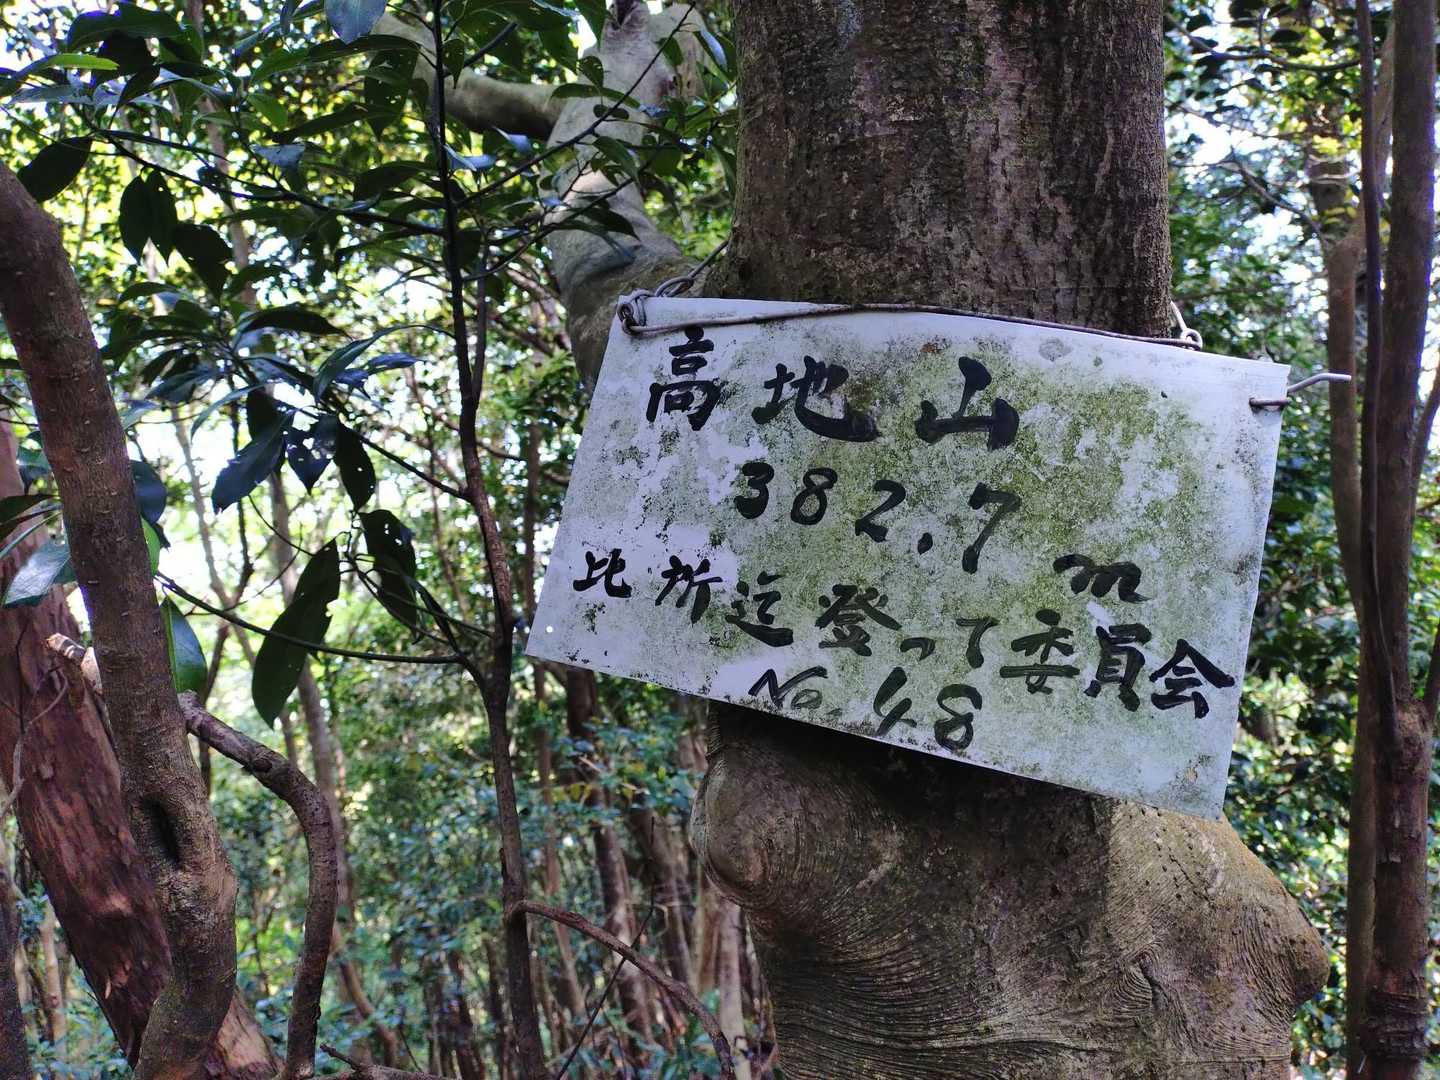 高地山
382.7m
比所迄登って委員会
No.48